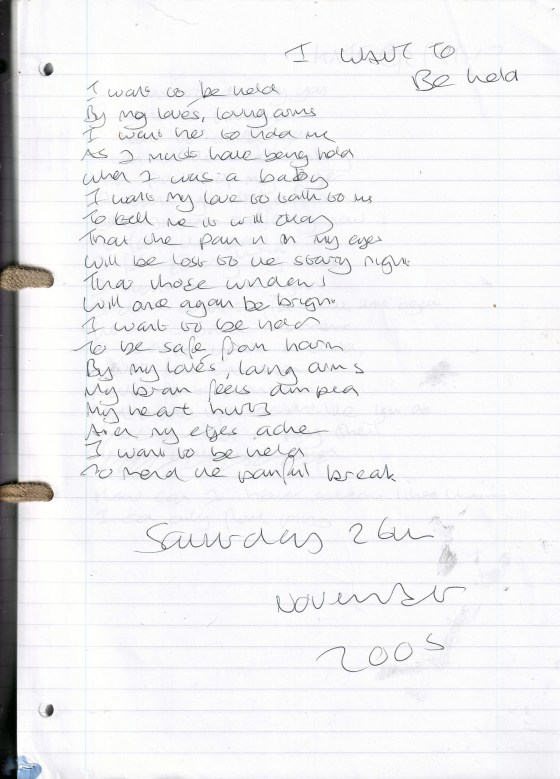 I WANT TO
Be held
I want to be held
By my loves, loving arms
I want her to hold me
As I must have being held
when I was a baby
I want my love to talk to me
To tell me it will okay
That the pain is in my eyes
will be lost to the starry night
That those windows
will once again be bright
I want to be held
To be safe from harm
By my loves, loving arms
My brain feels
My heart hurts
And my eyes ache
I want to be held
To mend the painful break
Saturday 26th
November
2005